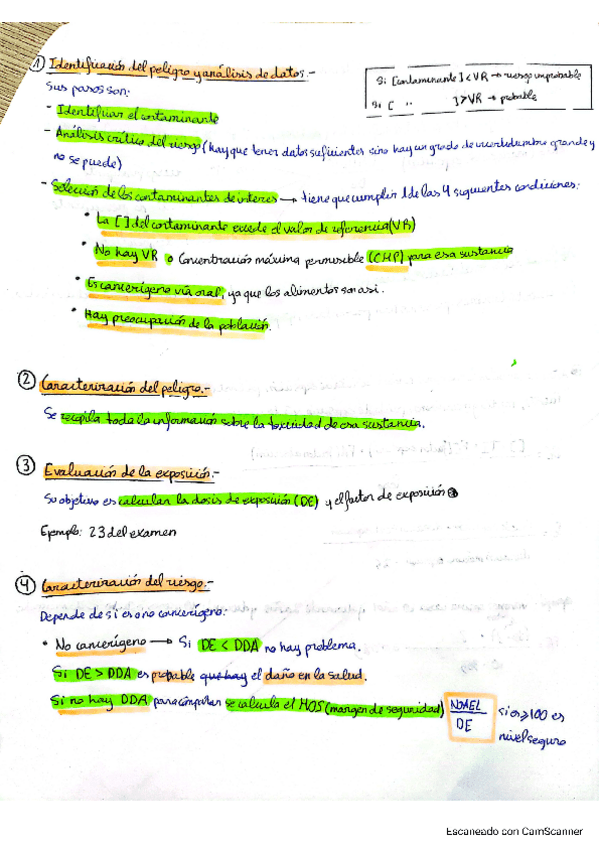 ① Identificación del peligro y análisis de datos.-
Si [contaminante] < VR → riesgo improbable
Si [ " ] > VR → probable
Sus pasos son:
- Identificar el contaminante
- Análisis crítico del riesgo (hay que tener datos suficientes sino hay un grado de incertidumbre grande y
no se puede)
- Selección de los contaminantes de interes → tiene que cumplir 1 de las 4 siguientes condiciones:
• La [ ] del contaminante excede el valor de referencia (VR)
• No hay VR o Concentración máxima permisible (CMP) para esa sustancia
• Es cancerígeno vía oral, ya que los alimentos son así.
• Hay preocupación de la población.
② Caracterización del peligro.-
Se recopila toda la información sobre la toxicidad de esa sustancia.
③ Evaluación de la exposición.-
Su objetivo es calcular la dosis de exposición (DE) y el factor de exposición
Ejemplo: 23 del examen
④ Caracterización del riesgo.-
Depende de si es o no cancerígeno:
• No cancerígeno → Si DE < DDA no hay problema.
Si DE > DDA es probable que hay el daño en la salud.
Si no hay DDA para comparar se calcula el MOS (margen de seguridad) NOAEL / DE si es ≥ 100 es
nivel seguro
Escaneado con CamScanner